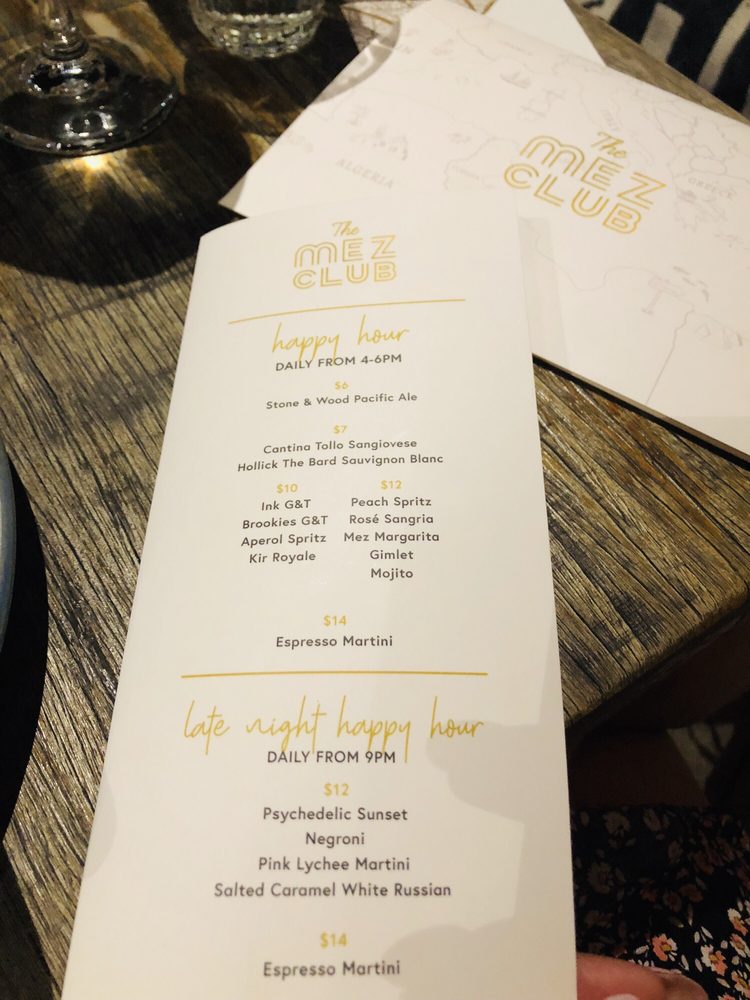 The
MEZ
CLUB
ALGERIA
GREECE
The
MEZ
CLUB
happy hour
DAILY FROM 4-6PM
$6
Stone & Wood Pacific Ale
$7
Cantina Tollo Sangiovese
Hollick The Bard Sauvignon Blanc
$10
Ink G&T
Brookies G&T
Aperol Spritz
Kir Royale
$12
Peach Spritz
Rosé Sangria
Mez Margarita
Gimlet
Mojito
$14
Espresso Martini
late night happy hour
DAILY FROM 9PM
$12
Psychedelic Sunset
Negroni
Pink Lychee Martini
Salted Caramel White Russian
$14
Espresso Martini